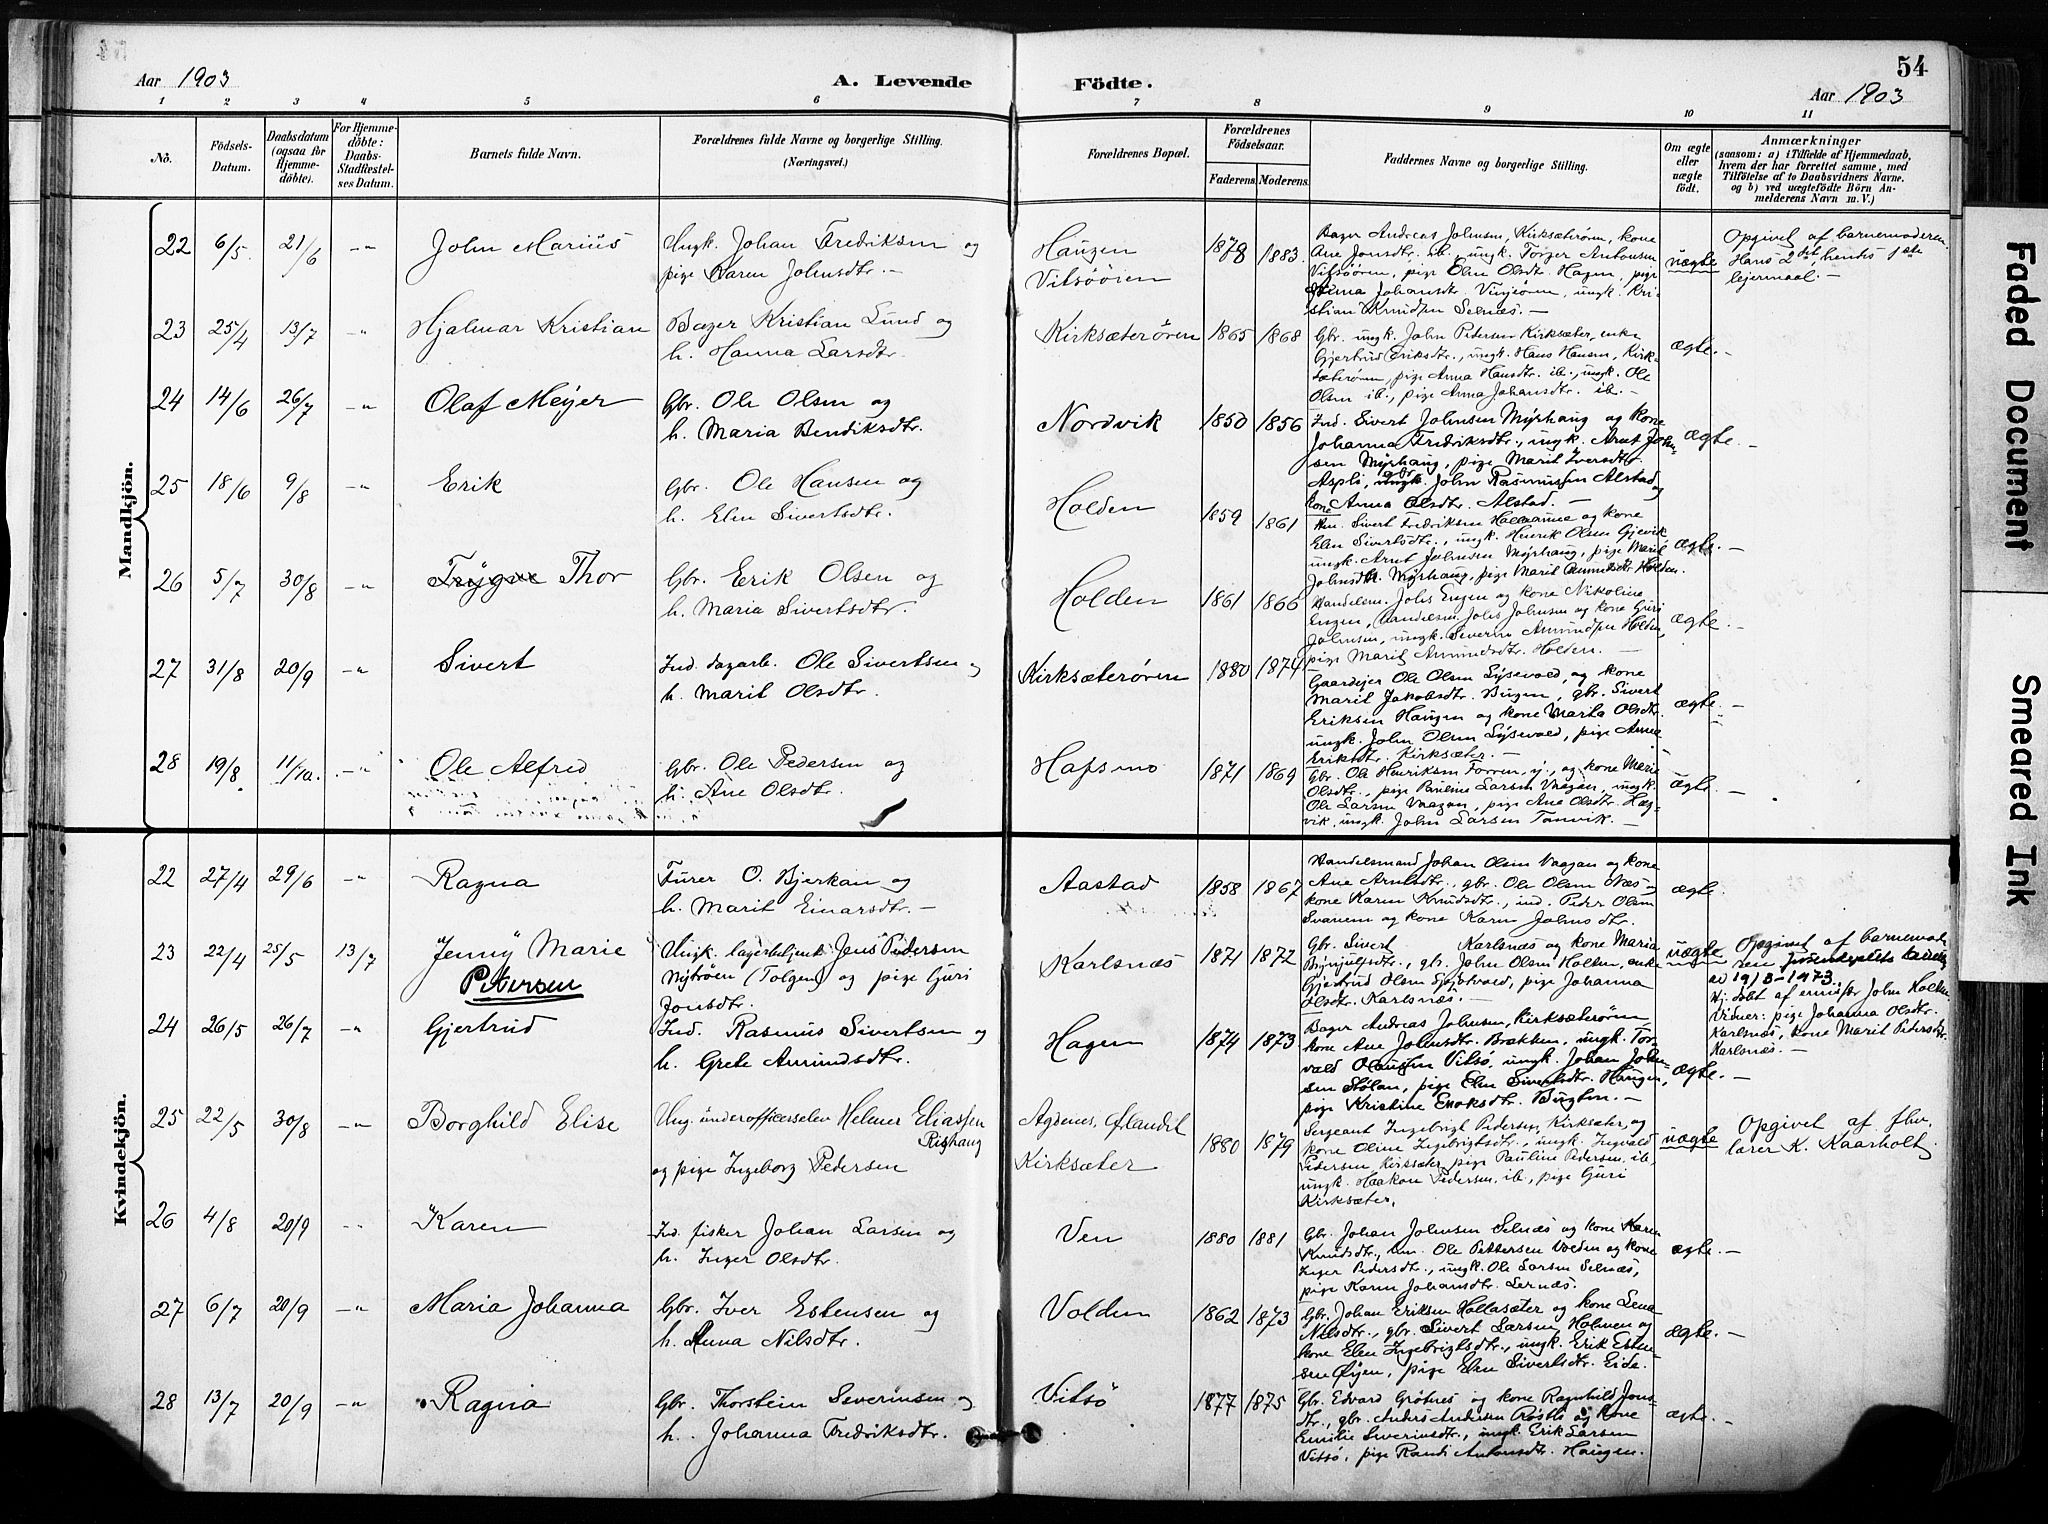 54
Aar 1903
A. Levende
Födte.
Aar 1903
1 2 3 4 5 6 7 8 9 10 11
No.
Födsels-Datum.
Daabsdatum (ogsaa för Hjemmedöbte).
For Hjemmedöbte: Daabs-Stadfæstelses Datum.
Barnets fulde Navn.
Forældrenes fulde Navne og borgerlige Stilling.
(Næringsvei.)
Forældrenes Bopæl.
Forældrenes Födselsaar.
Faderens.
Moderens.
Faddernes Navne og borgerlige Stilling.
Om ægte eller uægte födt.
Anmærkninger
(saasom: a) i Tilfælde af Hjemmedaab,
hvem der har forrettet samme, med
Tilföielse af to Daabsvidners Navne.
og b) ved uægtefödte Börn Anmelderens Navn m. V.)
Mandkjön.
22 6/5 21/6 -"- John Marius
Ungk. Johan Fredriksen og
pige Karen Johnsdtr. -
Haugen
Vitsöören
1878 1883
Bager Andreas Johnsen, Kirksæterören, kone
Ane Jonsdtr. ib. ungk. Torger Antonsen
Vitsöören, pige Elen Olsdt. Hagen, pige
stian Knudsen Selnæs. -
uægte
Opgivet af barnemoderen.
Hans 2det, hendes 1ste
lejermaal. -
23 25/4 13/7 -"- Hjalmar Kristian
Bager Kristian Lund og
h. Hanna Larsdtr.
Kirksæterören
1865 1868
Gbr. ungk. John Pedersen Kirksæter, enke
Gjertrud Eriksdtr., ungk. Hans Hansen, Kirk-
sæterören, pige Anna Hansdtr. ib., ungk. Ole
Olsen ib., pige Anna Johansdtr. ib. -
ægte. -
24 14/6 26/7 -"- Olaf Meyer
Gbr. Ole Olsen og
h. Maria Bendiksdtr.
Nordvik
1850 1856
Ind. Sivert Johnsen Myrhaug og kone
Johanna Fredriksdtr., ungk. Arnt John-
sen Myrhaug, pige Marit Iversdtr.
Aspli, ungk. gbr. John Rasmussen Alstad og
kone Anna Olsdtr. Alstad. -
ægte. -
25 18/6 9/8 -"- Erik
Gbr. Ole Hansen og
h. Elen Sivertsdtr.
Holden
1859 1861
Sivert Fredriksen og kone
Elen Sivertsdtr., ungk. Henrik Olsen Gjevik,
ungk. Arnt Johnsen Myrhaug, pige Marit
Johnsdtr. Myrhaug, pige Marit Amundsdtr Holden.
ægte. -
26 5/7 30/8 -"- Trygve Thor
Gbr. Erik Olsen og
h. Maria Sivertsdtr.
Holden
1861 1866
Handelsm. Johs Engen og kone Nikoline
Engen, Handelsm. Johs Johnsen og kone Guri
Johnsen, ungk. Severin Amundsen Holden,
pige Marit Amundsdtr. Holden. -
ægte. -
27 31/8 20/9 -"- Sivert
Ind. dagarb. Ole Sivertsen og
h. Marit Olsdtr.
Kirksæterören
1880 1874
Gaardejer Ole Olsen Lysevold, og kone
Marit Jakobsdtr. Bugen, gbr. Sivert
Eriksen Haugen og kone Marta Olsdtr.
ungk. John Olsen Lysevold, pige Anne
Eriksdtr. Kirksæter. -
ægte. -
28 19/8 11/10. -"- Ole Alfred
Gbr. Ole Pedersen og
h. Ane Olsdtr.
Hafsmo
1871 1869
Gbr. Ole Henriksen Forren, y., og kone Marie
Olsdtr., pige Pauline Larsen Vaagan, ungk.
Ole Larsen Vaagan, pige Ane Olsdtr. Hæg-
vik, ungk. John Larsen Tanvik. -
ægte. -
Kvindekjön.
22 27/4 29/6 -"- Ragna
Furer O. Bjerkan og
h. Marit Einarsdtr. -
Aastad
1858 1867
Handelsmand Johan Olsen Vaagan og kone
Ane Arntsdtr., gbr. Ole Olsen Næs og
kone Karen Knudsdtr., ind. Peder Olsen
Svanem og kone Karen Johnsdtr.
ægte.
23 22/4 25/5 13/7 Jenny Marie
Petersen
Ungk. lagerbetjent Jens Pedersen
Nytröen (Tolgen) og pige Guri
Jonsdtr.
Karlsnæs
1871 1872
Gbr. Sivert Karlsnæs og kone Maria
Brynjulfsdtr., gbr. John Olsen Holten, enke
Gjertrud Olsen, pige Johanna
Olsdtr. Karlsnæs. -
uægte
Opgivet af barnemode-
ren
1913-1973.
Hj. döbt af John Holten
Vidner: pige Johanna Olsdtr.
Karlsnæs, kone Marit Pedersdtr.
Karlsnæs. -
24 26/5 26/7 -"- Gjertrud
Ind. Rasmus Sivertsen og
h. Grete Amundsdtr.
Hagen
1874 1873
Bager Andreas Johnsen, Kirksæterören
kone Ane Johnsdtr. Brækken, ungk. Tor-
vald Haugen Vitsö, ungk. Johan John-
sen Stölan, pige Elen Sivertsdtr. Haugen,
pige Kristine Enoksdtr. Bugten. -
ægte. -
25 22/5 30/8 -"- Borghild Elise
Ung. underofficerselev Helmer Eliassen
Rishaug
og pige Ingeborg Pedersen
Agdenes, Ørlandet
Kirksæter
1880 1879
Sergeant Ingebrigt Pedersen, Kirksæter, og
kone Oline Ingebrigtsdtr., ungk. Ingvald
Pedersen Kirksæter, pige Pauline Pedersen, ib,
ungk. Haakon Pedersen, ib., pige Guri
Kirksæter.
uægte
Opgivet af fhv.
lærer K. Kaarholt.
26 4/8 20/9 -"- Karen
Ind. fisker Johan Larsen og
h. Inger Olsdtr.
Ven
1880 1881
Gbr. Johan Johnsen Selnæs og kone Karen
Knudsdtr., Ole Pettersen Volden og kone
Inger Pedersdtr., ungk. Ole Larsen Selnæs,
pige Karen Johansdtr. Lernæs.
ægte. -
27 6/7 20/9 -"- Maria Johanna
Gbr. Iver Estensen og
h. Anna Nilsdtr.
Volden
1862 1873
Gbr. Johan Eriksen Hollasæter og kone Lena
Nilsdtr., gbr. Sivert Larsen Holmen og
kone Elen Ingebrigtsdtr., ungk. Erik Esten-
sen Øyen, pige Elen Sivertsdtr. Eide.
ægte. -
28 13/7 20/9 -"- Ragna
Gbr. Thorstein Severinsen og
h. Johanna Fredriksdtr.
Vitsö
1877 1875
Gbr. Edvard Grötnes og kone Ragnhild Jons-
dtr., gbr. Anders Andersen Röstö og kone
Emilie Severinsdtr., ungk. Erik Larsen
Vitsö, pige Randi Antonsdtr. Haugen.
ægte. -
Faded Document
Smeared Ink